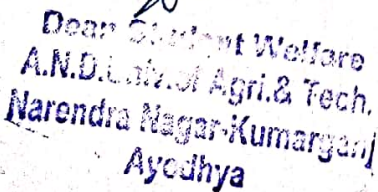 Dean Student Welfare
A.N.D.Univ.of Agri.& Tech.
Narendra Nagar-Kumarganj
Ayodhya